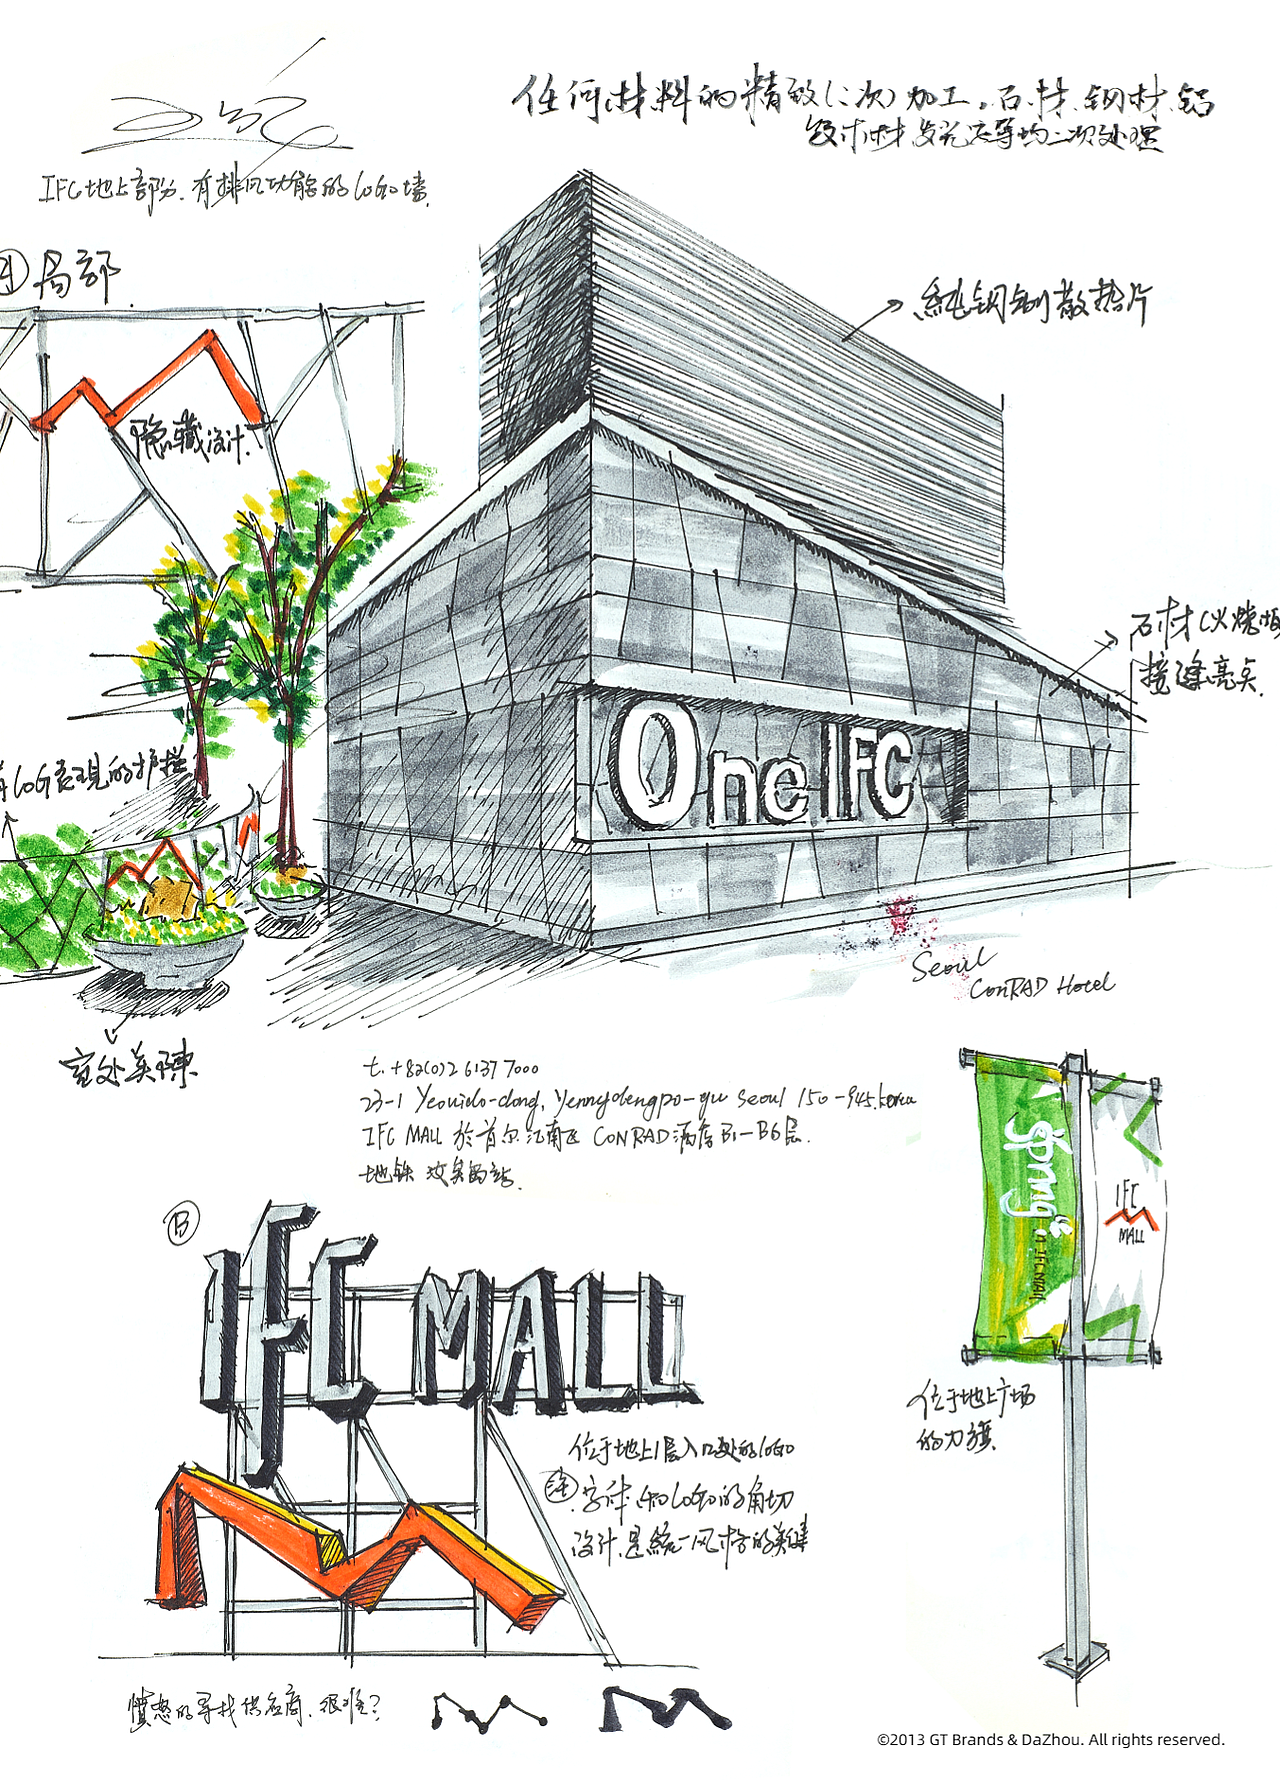 任何材料的精致(二次)加工。石材.钢材.铝
设计材.发光店等均二次处理
IFC地上部分.有排风功能的logo墙.
A 局部
純钢制散热片
隐藏设计.
石材(火烧
接缝亮点.
logo表现的护栏
One IFC
Seoul
ConRAD Hotel
室外美陳
t. +82(0)2 6137 7000
23-1 Yeouido-dong, Yeongdeungpo-gu Seoul 150-945.korea
IFC MALL 於首尔江南区 CONRAD酒店B1-B6层.
地铁
spring
in IFC MALL
IFC
MALL
B
IFC MALL
位于地上广场
的刀旗
位于地上1层入口处的logo
字体和logo的角切
设计.是統一风格的关键
愤怒的寻找供应商.很难?
©2013 GT Brands & DaZhou. All rights reserved.